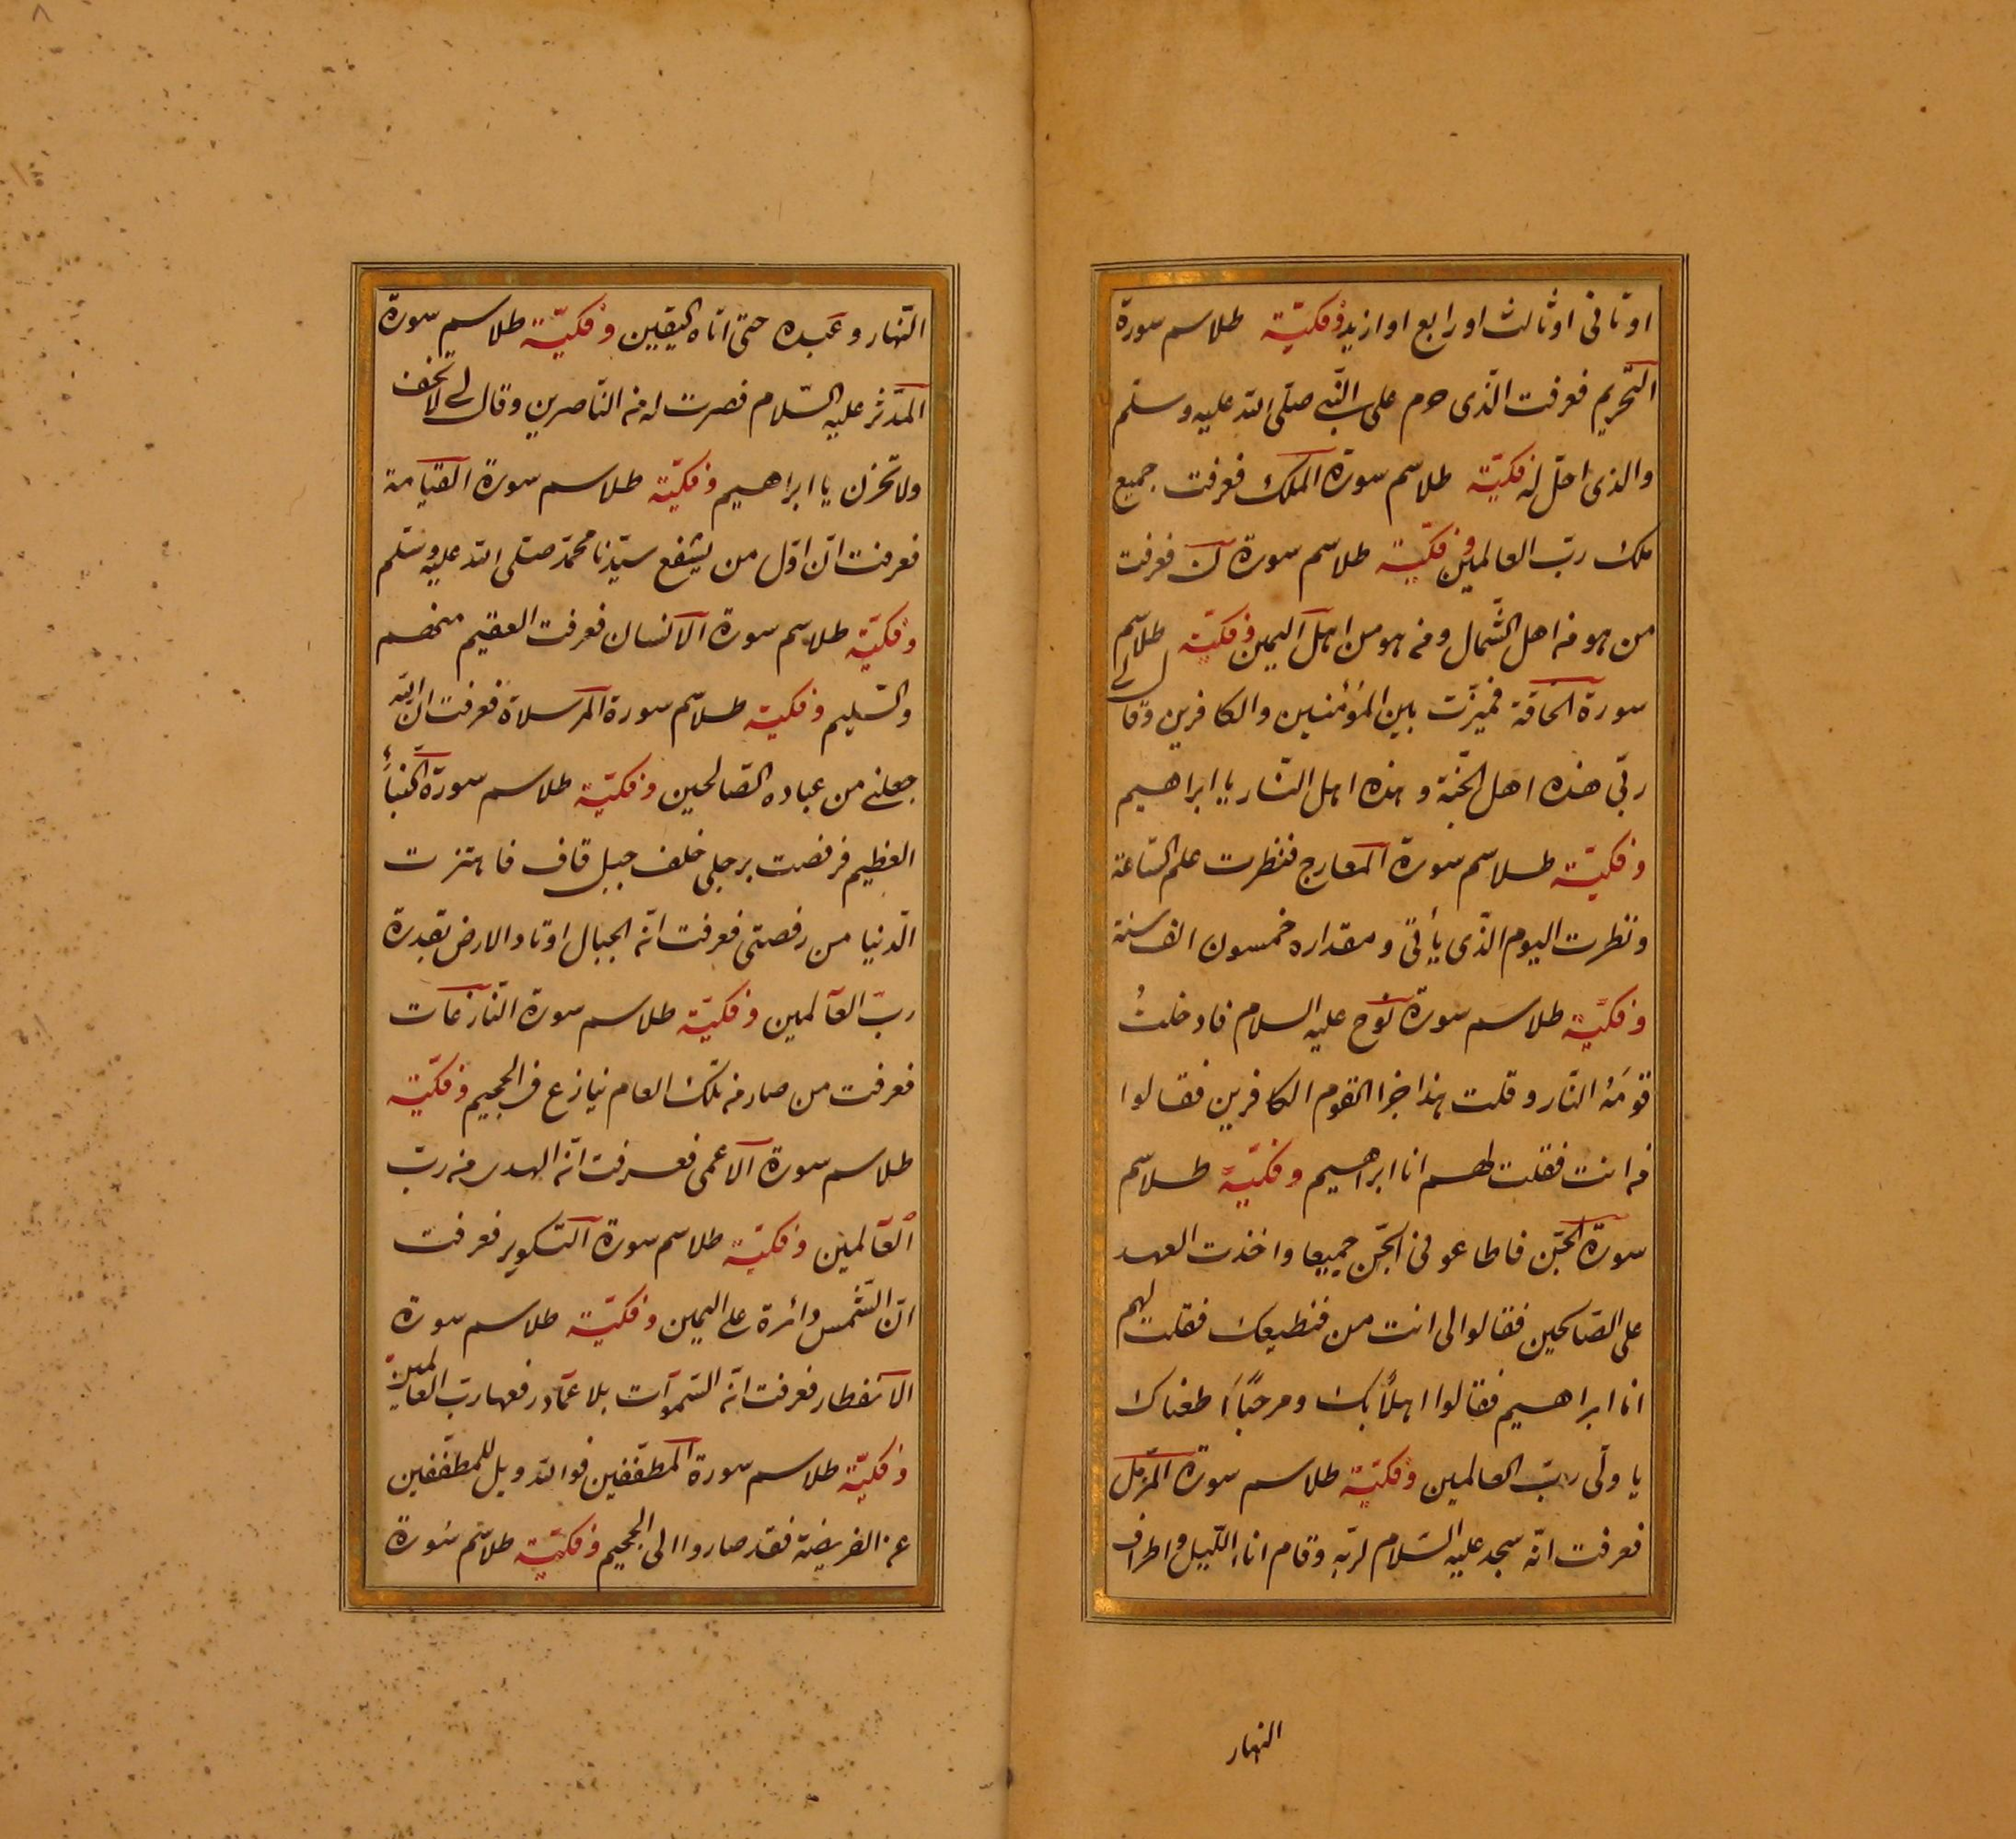 او ثانی او ثالث او رابع او ازید وفكیّة طلاسم سورة
التحریم فعرفت الّذی حرم علی النّبی صلّی الله علیه وسلّم
والذی احلّ له فكیّة طلاسم سورة الملك فعرفت جمیع
ملك ربّ العالمین وفكیّة طلاسم سورة ن فعرفت
من هو من اهل الشّمال ومن هو من اهل الیمین وفكیّة طلاسم
سورة الحاقة فمیّزت بین المؤمنین والكافرین وقال لی
ربّی هذه اهل الجّنة وهذه اهل النّار یا ابراهیم
وفكیّة طلاسم سورة المعارج فنظرت علم السّاعة
ونظرت الیوم الذی یأتی ومقداره خمسون الف سنة
وفكیّة طلاسم سورة نوح علیه السلام فادخلتُ
قومَهُ النّار وقلت هذا جزا القوم الكافرین فقالوا
من انت فقلت لهم انا ابراهیم وفكیّة طلاسم
سورة الجّن فاطاعونی الجّن جمیعا واخذت العهد
علی الصّالحین فقالوا لی انت من فنطیعك فقلت لهم
انا ابراهیم فقالوا اهلاً بك ومرحبًا اطعناك
یا ولّی ربّ العالمین وفكیّة طلاسم سورة المزّمل
فعرفت انّه سجد علیه السّلام لربّه وقام اناء اللّیل واطراف
النهار
النّهار وعبده حتی اتاه الیقین وفكیّة طلاسم سورة
المدّثر علیه السّلام فصرت له من النّاصرین وقال لی لا تخف
ولا تحزن یا ابراهیم وفكیّة طلاسم سورة القیامة
فعرفت انّ اوّل من یشفع سیّدنا محمّد صلّی الله علیه وسلّم
وفكیّة طلاسم سورة الانسان فعرفت العقیم منهم
والسّلیم وفكیّة طلاسم سورة المرسلاة فعرفت انّ الله
جعلنی من عباده الصّالحین وفكیّة طلاسم سورة النبأ
العظیم فرفصت برجلی خلف جبل قاف فاهتزت
الدّنیا من رفصتی فعرفت انّه الجبال اوتاد الارض بقدرة
ربّ العالمین وفكیّة طلاسم سورة النّازعات
فعرفت من صار من تلك العام ینازع فی الجحیم وفكیّة
طلاسم سورة الاعمی فعرفت انّه الهدی من ربّ
العالمین وفكیّة طلاسم سورة التكویر فعرفت
انّ الشّمس دائرة علی الیمین وفكیّة طلاسم سورة
الانفطار فعرفت انّه السّموات بلا عمّاد رفعها ربّ العالمین
وفكیّة طلاسم سورة المطفّفین فوالله ویل للمطفّفین
عن الفریضة فقد صاروا الی الجحیم وفكیّة طلاسم سُورة